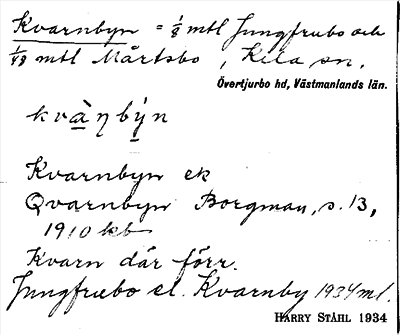 Kvarnbyn = 1/8 mtl Jungfrubo och
1/48 mtl Mårtsbo, Kila sn.
Övertjurbo hd, Västmanlands län.
kvà̱ṇbý̱n
Kvarnbyn ek
Qvarnbyn Borgman, s. 13,
1910 kb
Kvarn där förr.
Jungfrubo el. Kvarnby 1934 ml.
HARRY STÅHL 1934